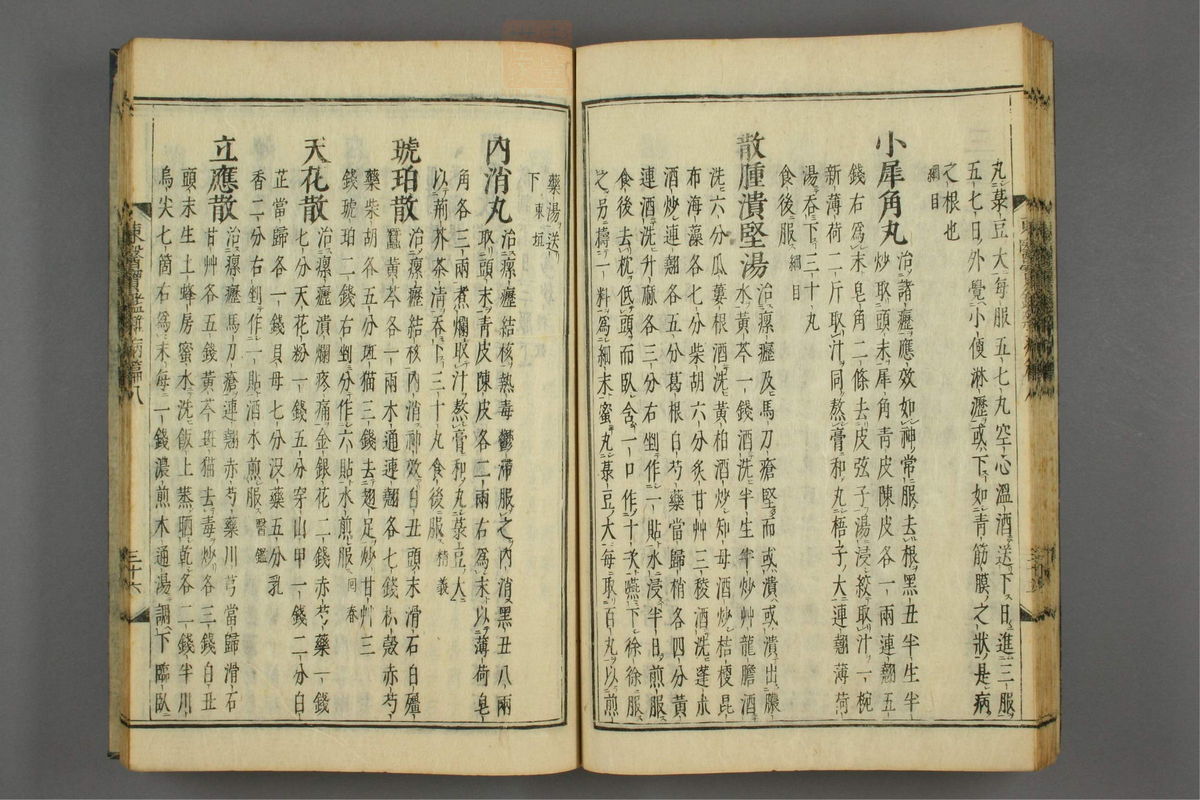 丸菉豆大每服五七丸空心溫酒送下日進三服
五七日外覺小便淋瀝或下如青筋膜之狀是病
之根也
綱目
小犀角丸 治諸瘰應效如神常服去根黑丑半生半
炒取頭末犀角青皮陳皮各一兩連翹五
錢右爲末皂角二條去皮弦子湯浸絞取汁一椀
新薄荷二斤取汁同熬膏和丸梧子大連翹薄荷
湯呑下三十丸
食後服綱目
散腫潰堅湯 治瘰癧及馬刀瘡堅而或潰或潰出膿
水黃芩一錢酒洗半生半炒艸龍膽酒
洗六分瓜蔞根酒洗黃柏酒炒知母酒炒桔梗昆
布海藻各五分柴胡六分炙甘艸三稜酒洗蓬朮
酒炒連翹各五分葛根白芍藥當歸梢各四分黃
連酒洗升麻各三分右剉作一貼水浸半日煎服
食後去枕低頭而臥含一口作十次嚥下徐徐服
之另擣一料爲細末蜜丸菉豆大每取百丸以煎
藥湯送
下東垣
內消丸 治瘰癧結核熱毒鬱滯服之內消黑丑八兩
取頭末青皮陳皮各二兩右爲末以薄荷皂
角各三兩煮爛取汁熬膏和丸菉豆大
以荊芥茶清呑下三十丸食後服精義
琥珀散 治瘰癧結核內消神效白丑頭末滑石白殭
蠶黃芩各一兩木通連翹各七錢枳殼赤芍
藥柴胡各五分斑猫三錢去翅足炒甘艸三
錢琥珀二錢右剉分作六貼水煎服回春
天花散 治瘰癧潰爛疼痛金銀花二錢赤芍藥一錢
七分天花粉一錢五分穿山甲一錢二分白
芷當歸各一錢貝母七分沒藥五分乳
香二分右剉作一貼酒水煎服醫鑑
立應散 治瘰癧馬刀瘡連翹赤芍藥川芎當歸滑石
甘艸各五錢黃芩斑猫去毒炒各三錢白丑
頭末生土蜂房蜜水洗飯上蒸晒乾各二錢半川
烏尖七箇右爲末每一錢濃煎木通湯調下臨臥
東醫寶鑑雜病篇八
三十六